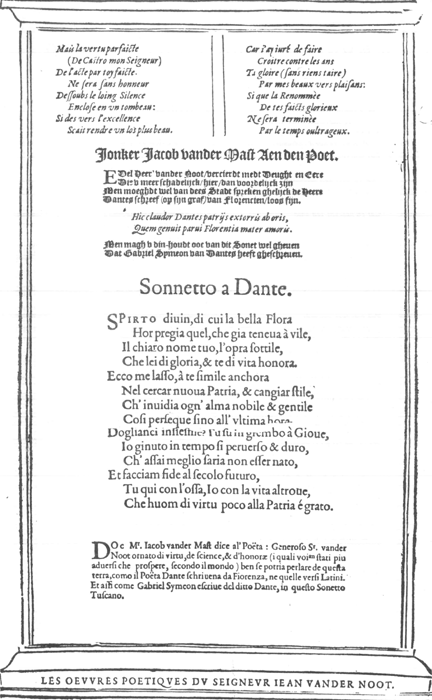 Mais la vertu parfaicte
(De Castro mon Seigneur)
De l'acte par toy faicte
Ne sera sans honneur
Dessoubs le loing Silence
Enclose en vn tombeau:
Si des vers l'excellence
Scait rendre vn lot plus beau.
Car i'ay iuré de faire
Croitre contre les ans
Ta gloire (sans riens taire)
Par mes beaux vers plaisans:
Si que la Renommée
De tes faicts glorieux
Ne sera terminée
Par le temps oultrageux.
Jonker Jacob vander Mast Aen den Poet.
EDel Heer vander Noot/verciert medt Deught en Eere
Die v meer schadelijck/hier/dan voordelijck zijn
Men moeghdt wel van dees Stadt spreken ghelijck de Heere
Dantes schreef (op sijn graf) van Florencien/loos fijn.
Hic claudor Dantes patrijs exterris ab oris,
Quem genuit parui Florentia mater amoris.
Men magh v din-houdt oor van dit Sonet wel gheuen
Dat Gabriel Symeon van Dantes heeft gheschreuen.
Sonnetto a Dante.
SPIRTO diuin, di cui la bella Flora
Hor pregia quel, che gia teneua à vile,
Il chiaro nome tuo, l'opra sottile,
Che lei di gloria, & te di vita honora.
Ecco me lasso, à te simile anchora
Nel cercar nuoua Patria, & cangiar stile,
Ch' inuidia ogn' alma nobile & gentile
Cosi perseque sino all' vltima hora.
Doglianci insieme? Tu su in grembo à Gioue,
Io ginuto in tempo si peruerso & duro,
Ch' assai meglio saria non esser nato,
Et facciam fide al secolo futuro,
Tu qui con l'ossa, Io con la vita altroue,
Che huom di virtu poco alla Patria é grato.
DOe Mr. Iacob vander Mast dice al' Poëta: Generoso Sr. vander
Noot ornato di virtu, de science, & d'honoræ (i quali voi stati piu
aduersi che prospere, secondo il mondo) ben se potria perlare de questa
terra, como il Poëta Dante schriuena da Fiorenza, ne quelle versi Latini.
Et aissi come Gabriel Symeon escriue del ditto Dante, in questo Sonetto
Tuscano.
LES OEVVRES POETIQVES DV SEIGNEVR IEAN VANDER NOOT.